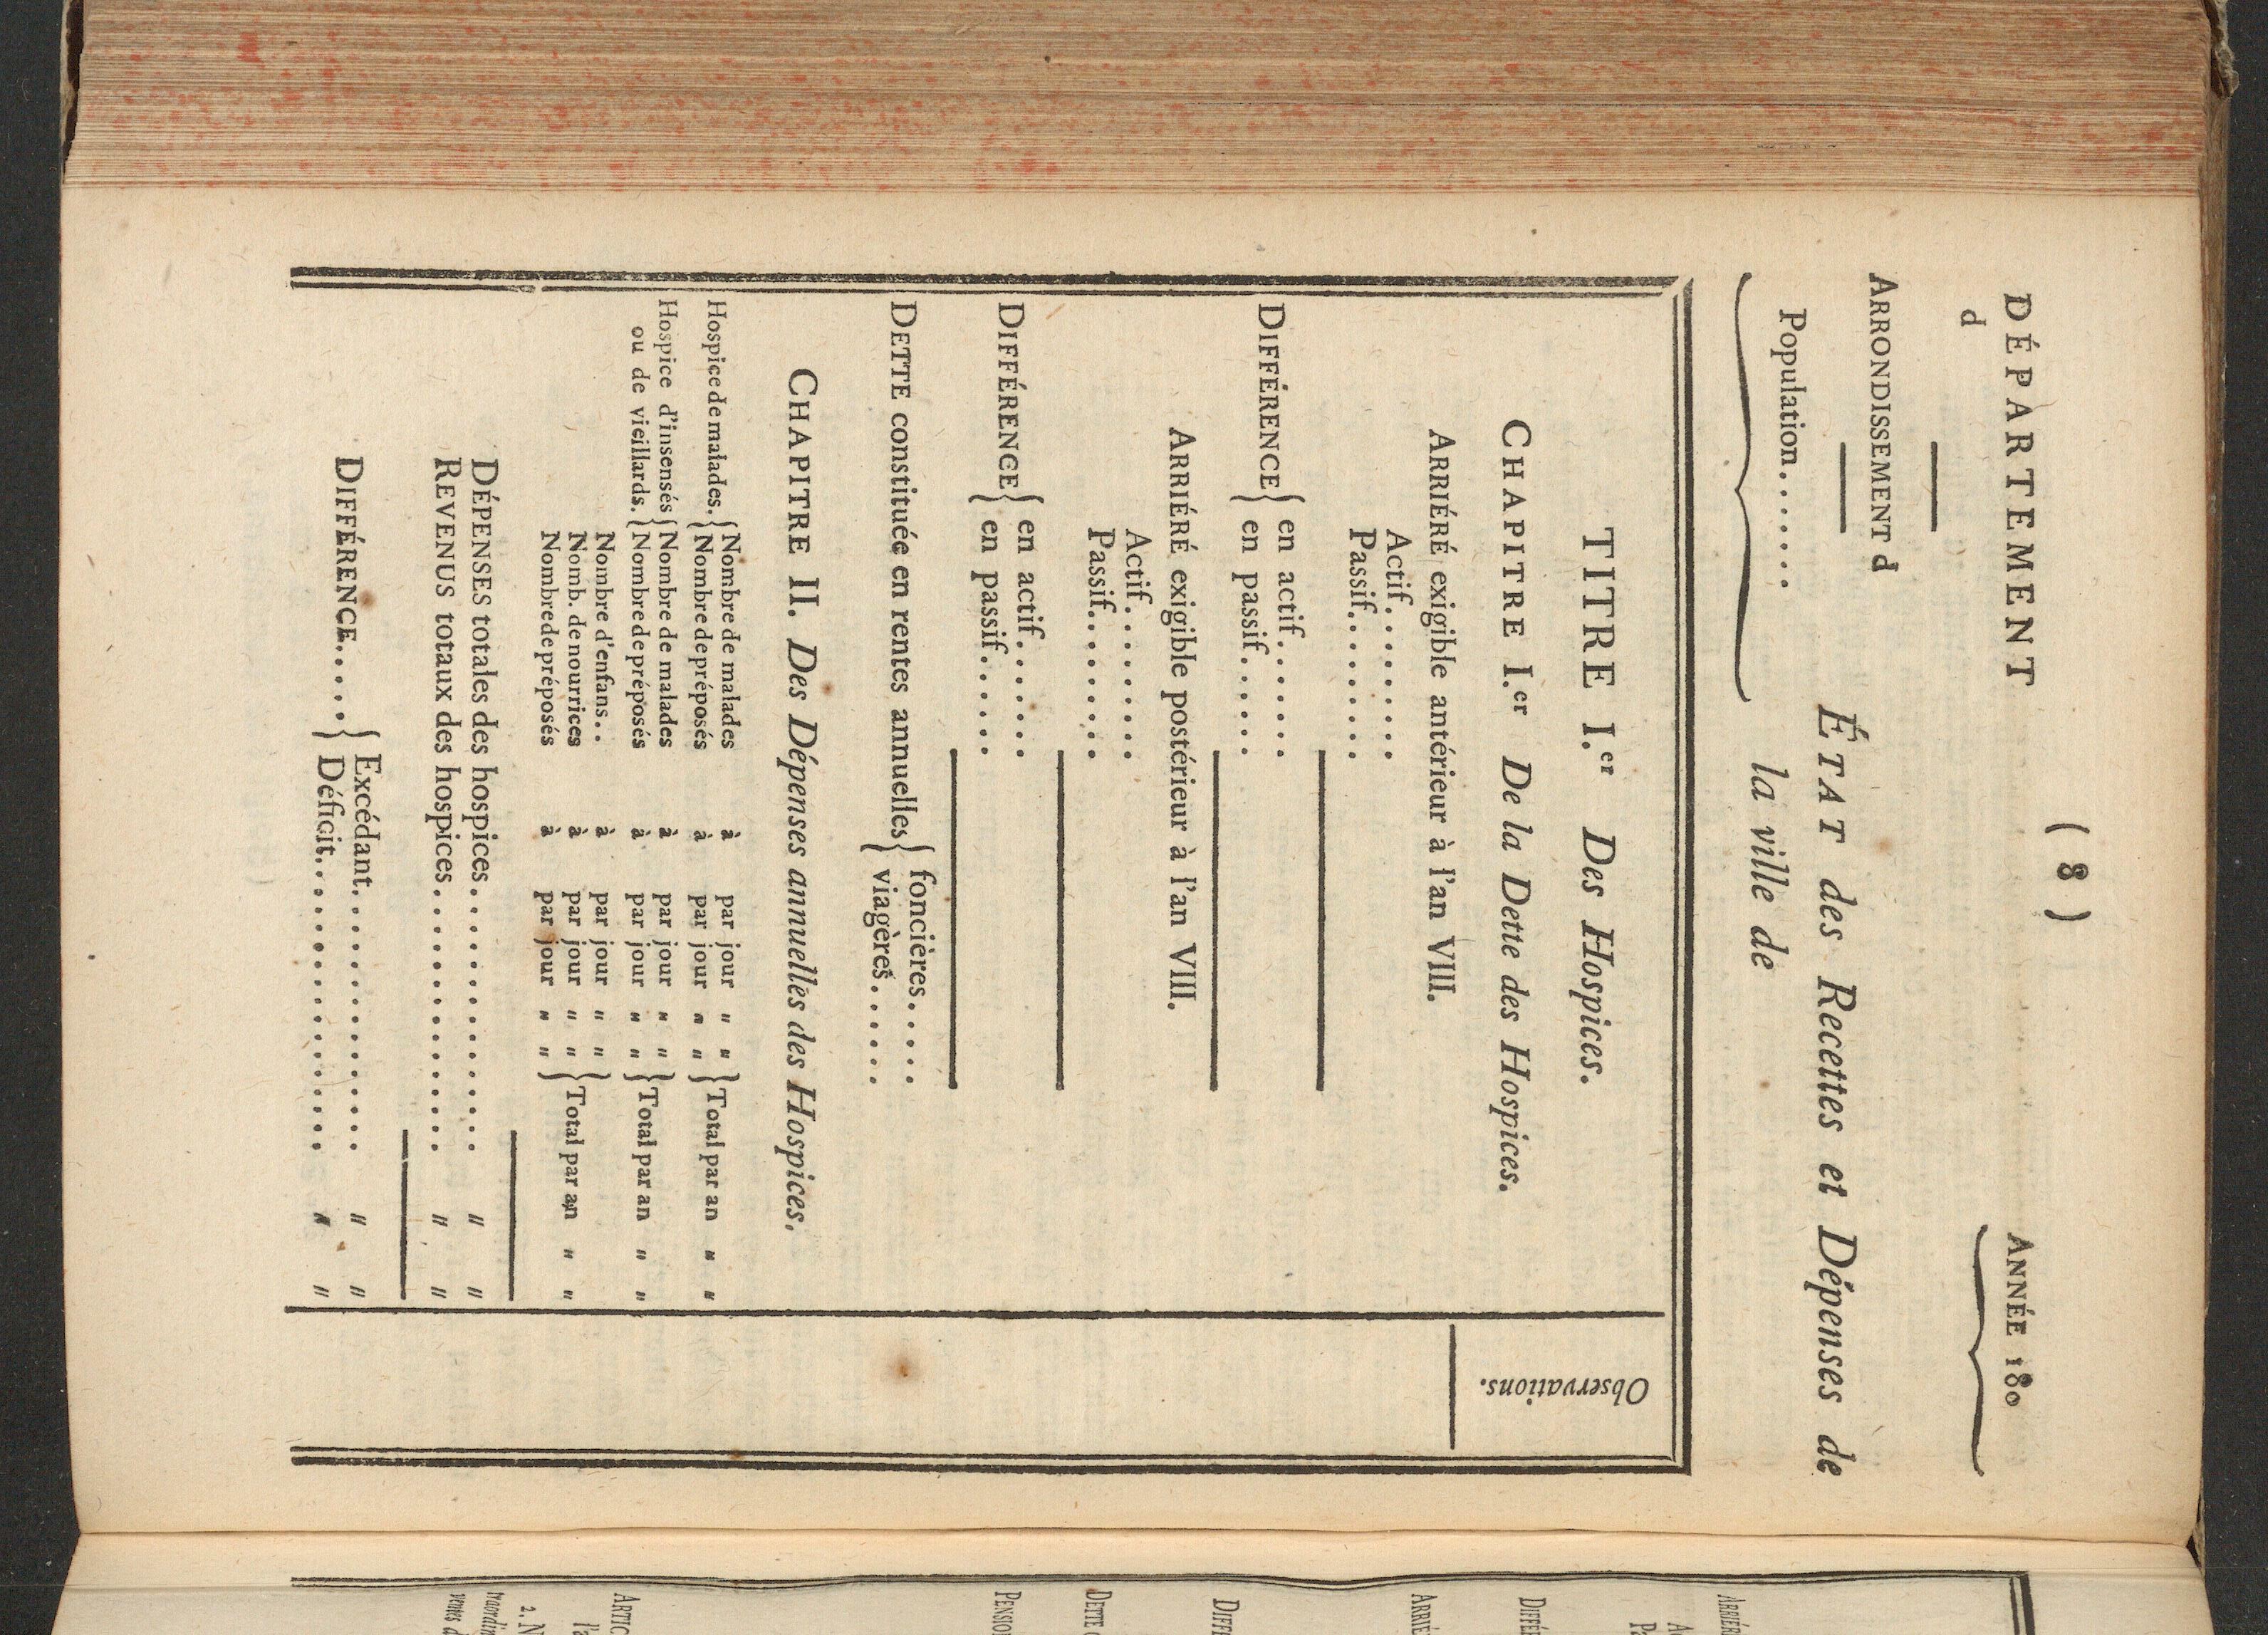 ( 8 )
DÉPARTEMENT
d
ANNÉE 180
ARRONDISSEMENT d
Population.......
ÉTAT des Recettes et Dépenses de
la ville de
Observations.
TITRE I.er Des Hospices.
CHAPITRE I.er De la Dette des Hospices.
ARRIÉRÉ exigible antérieur à l'an VIII.
Actif........
Passif........
DIFFÉRENCE { en actif.......
en passif......
ARRIÉRÉ exigible postérieur à l'an VIII.
Actif........
Passif........
DIFFÉRENCE { en actif.......
en passif......
DETTE constituée en rentes annuelles { foncières.....
viagères......
CHAPITRE II. Des Dépenses annuelles des Hospices.
Hospice de malades. { Nombre de malades à par jour " " } Total par an " "
Nombre de préposés à par jour " "
Hospice d'insensés { Nombre de malades à par jour " " } Total par an " "
ou de vieillards. Nombre de préposés à par jour " "
Nombre d'enfans.. à par jour " " } Total par an " "
Nomb. de nourrices à par jour " "
Nombre de préposés à par jour " "
DÉPENSES totales des hospices............. " "
REVENUS totaux des hospices............. " "
DIFFÉRENCE.... { Excédant............. " "
Déficit.............. " "
ARRIÉR
DIFFÉ
ARRIÉ
DIFF
DETTE
PENSIO
ARTIC
l'a
2. N
traordin
ventes d